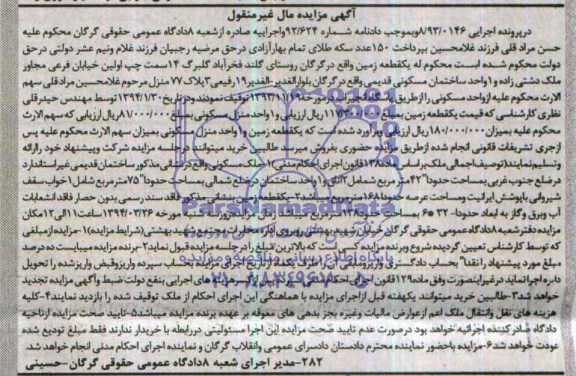 آگهی مزایده مال غیرمنقول
درپرونده اجرایی ۸/۹۳/۰۱۴۶ وبموجب دادنامه شماره ۹۲/۶۲۴ واجراییه صادره ازشعبه ۸دادگاه عمومی حقوقی گرگان محکوم علیه
حسن مراد قلی فرزند غلامحسین بپرداخت ۱۵۰عدد سکه طلای تمام بهارآزادی درحق مرضیه رجبیان فرزند غلام ونیم عشر دولتی درحق
دولت محکوم شده است محکوم له یکقطعه زمین واقع درگرگان روستای گلند فخرآباد گلبرگ ۱۴سمت چپ اولین خیابان فرعی مجاور
ملک دشتی زاده و۱واحد ساختمان مسکونی قدیمی واقع درگرگان بلوارالغدیر-الغدیر۱۹رفیعی۳پلاک۷۷ منزل مرحوم غلامحسین مراد قلی سهم
الارث محکوم علیه ازواحد مسکونی را ازطریق توقیف نمودند ودرتاریخ ۱۳۹۴/۱/۳۰ توسط مهندس حیدرقلی
نظری کارشناسی که قیمت یکقطعه زمین بمبلغ ریال ارزیابی و۱واحد منزل مسکونی بمبلغ ۸۱/۰۰۰/۰۰۰ریال ارزیابی که سهم الارث
محکوم علیه بمیزان ۱۸۰/۰۰۰/۰۰۰ریال ارزیابی وبرآورد شده است که یکقطعه زمین و۱واحد منزل مسکونی بمیزان سهم الارث محکوم علیه پس
ازجری تشریفات قانونی انجام شده ازطریق مزایده حضوری بفروش میرسد طالبین خرید میتوانند درجلسه مزایده شرکت وپیشنهاد خود راارائه
وتسلیم نمایند(توصیف اجمالی ملک براساس ماده۱۳۸قانون اجرای احکام مدنی ۱-ملک مسکونی واقع درنشانی مذکور ساختمان قدیمی غیراستاندارد
درضلع جنوب غربی بمساحت حدودا" ۴۲مترمربع شامل ۲اتاق و۱واحد ساختمان درضلع شمالی بمساحت حدودا"۷۵مترمربع شامل۱خواب سقف
شیروانی باپوشش ایرانیت ومساحت عرصه حدودا ۱۶۸ ۲-یکقطعه زمین بنشانی مذکور فاقد سند رسمی بدون حصار فاقد انشعابات
آب وبرق وگاز به ابعاد حدودا مورخه ۱۳۹۴/۰۳/۲۶ ساعت۱۱الی۱۲مکان
مزایده دفترشعبه ۸دادگاه عمومی حقوقی گرگان خیابان شهید بهشتی (شرایط مزایده)۱-مزایده ازمبلغی
که توسط کارشناس تعیین گردیده شروع وبرنده مزایده کسی است که بالاترین مبلغ را درجلسه مزایده قبول نماید۲-برنده مزایده میبایست ده درصد
مبلغ مورد پیشنهاد را نقدا" بحساب دادگستری واریز ومابقی آن را ظرف یکماه ازتاریخ اجرای مزایده بحساب سپرده واریزوقبض واریزشده را تحویل
دایره اجرا نماید درغیراینصورت وفق ماده۱۲۹قانون اجرای احکام مدنی هزینه های اجرایی بنفع دولت ضبط وآگهی مزایده تجدید
خواهد شد۳-طالبین خرید میتوانند یکهفته قبل ازاجرای مزایده با هماهنگی این اجرای احکام از ملک توقیف شده را بازدید نمایند۴-کلیه
هزینه های نقل وانتقال ملک اعم ازعوارض مالیات وغیره بجز بدهی های معوقه بر عهده برنده مزایده میباشد۵-تایید صحت مزایده ازناحیه
دادگاه صادرکننده اجرائیه خواهد بود درصورت عدم تایید صحت مزایده این اجرا مسئولیتی دررابطه با خریدار ندارند فقط مبلغ تودیع شده
عودت خواهد شد۶-مزایده باحضور نماینده محترم دادستان دادسرای عمومی وانقلاب گرگان و نماینده اجرای احکام مدنی انجام خواهد شد.
۲۸۲-مدیر اجرای شعبه ۸دادگاه عمومی حقوقی گرگان-حسینی